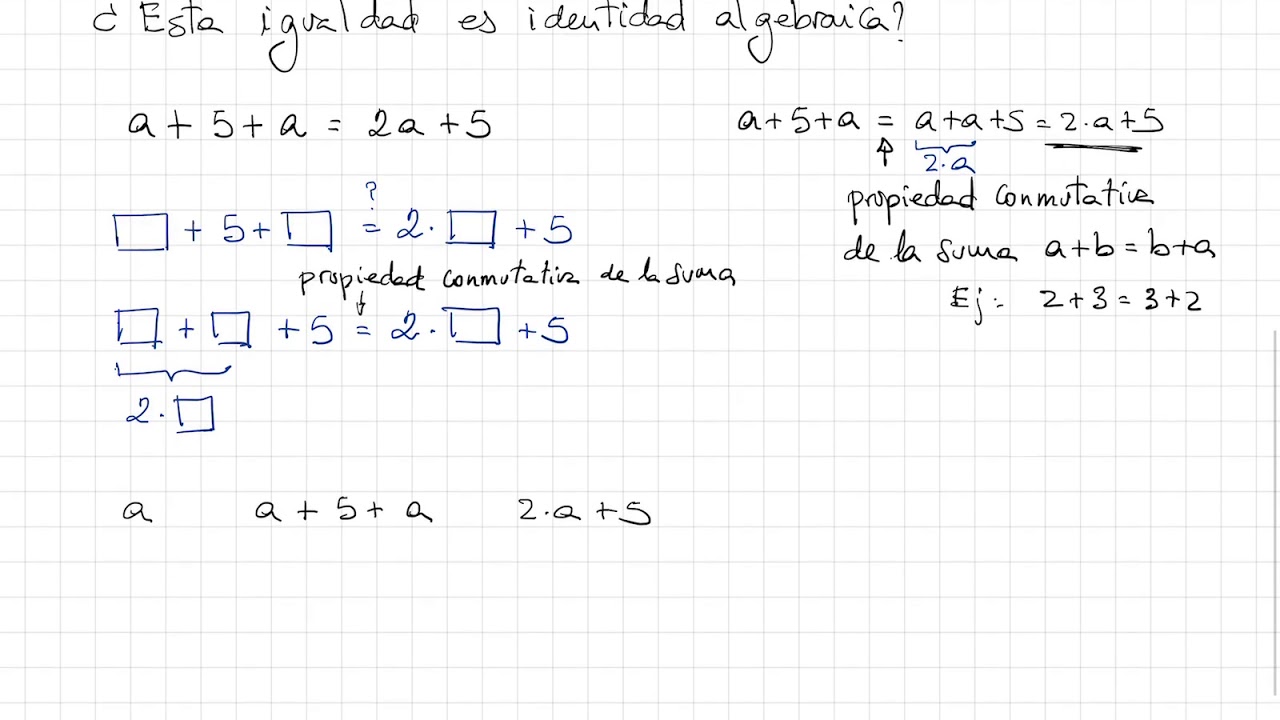 ¿Esta igualdad es identidad algebraica?
a + 5 + a = 2a + 5
□ + 5 + □ = 2 · □ + 5
?
propiedad conmutativa de la suma
□ + □ + 5 = 2 · □ + 5
2 · □
a + 5 + a = a + a + 5 = 2 · a + 5
2 · a
propiedad conmutativa
de la suma a + b = b + a
Ej: 2 + 3 = 3 + 2
a a + 5 + a 2 · a + 5